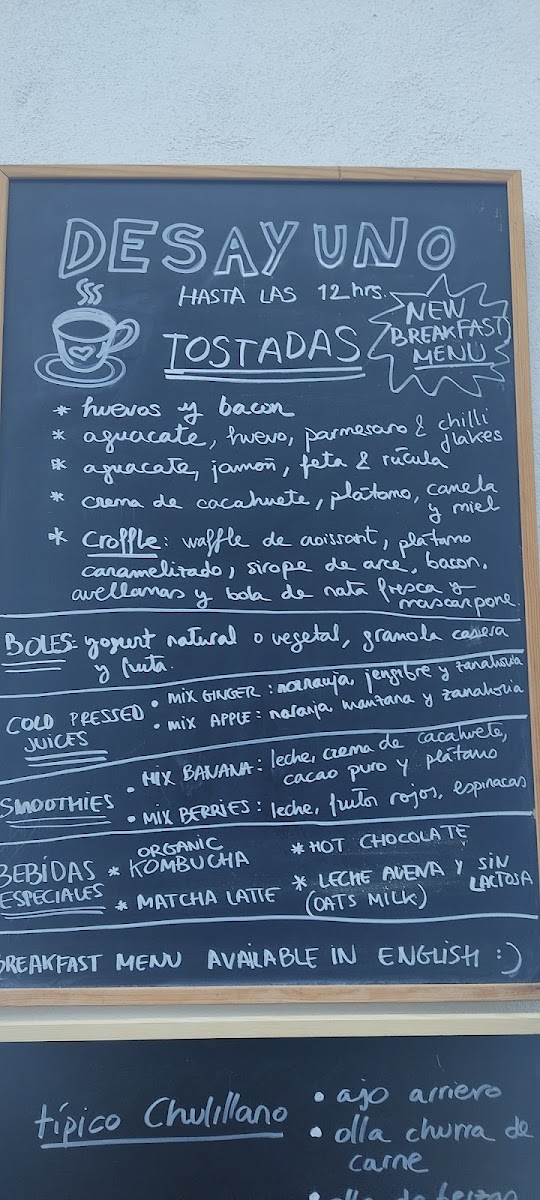 DESAYUNO
HASTA LAS 12 hrs.
NEW
BREAKFAST
MENU
TOSTADAS
* huevos y bacon
* aguacate, huevo, parmesano & chilli
flakes
* aguacate, jamon, feta & rúcula
* crema de cacahuete, plátano, canela
y miel
* Croffle: waffle de croissant, plátano
caramelizado, sirope de arce, bacon,
avellanas y bola de nata fresca y
mascarpone.
BOLES: yogurt natural o vegetal, granola casera
y fruta.
COLD PRESSED
JUICES
• MIX GINGER: naranja, jengibre y zanahoria
• MIX APPLE: naranja, manzana y zanahoria
SMOOTHIES
• MIX BANANA: leche, crema de cacahuete,
cacao puro y plátano
• MIX BERRIES: leche, frutos rojos, espinacas
BEBIDAS
ESPECIALES
* ORGANIC
KOMBUCHA
* MATCHA LATTE
* HOT CHOCOLATE
* LECHE AVENA Y SIN
LACTOSA
(OATS MILK)
BREAKFAST MENU AVAILABLE IN ENGLISH :)
típico Chulillano
• ajo arriero
• olla churra de
carne